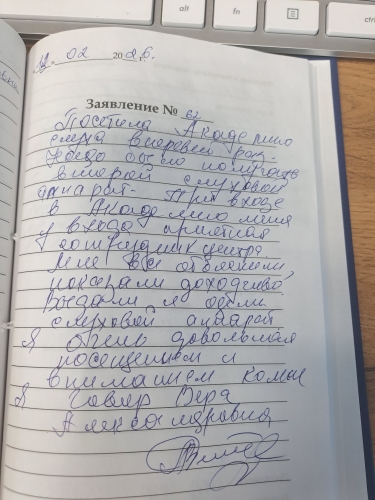 alt
fn
ctrl
12. 02 2026 г.
Заявление № 62
Посетила Академию
слуха впервый раз.
Надо было получать
второй слуховой
аппарат. При входе
в Академию меня
у входа приятная
сотрудник центра.
Мне все объяснили,
показали доходчиво.
Выдали и одели
слуховой аппарат
Я очень довольная
посещением и
вниманием ко мне
Я Вера
Александровна